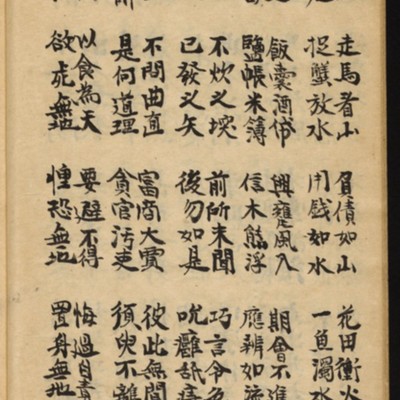 走馬看山 負債如山 花田衝火
捉蟹放水 用錢如水 一魚濁水
飯囊酒帒 風入 期會不進
鹽帳米簿 信木熊浮 應辨如
不炊之堗 前所未聞 巧言令色
已發之矢 後勿如是 吮癰舐痔
不問曲直 富商大賈 彼此無間
是何道理 貪官汚吏 須臾不離
以食為天 要避不得 悔過自責
欲死無地 惶恐無地 置身無地